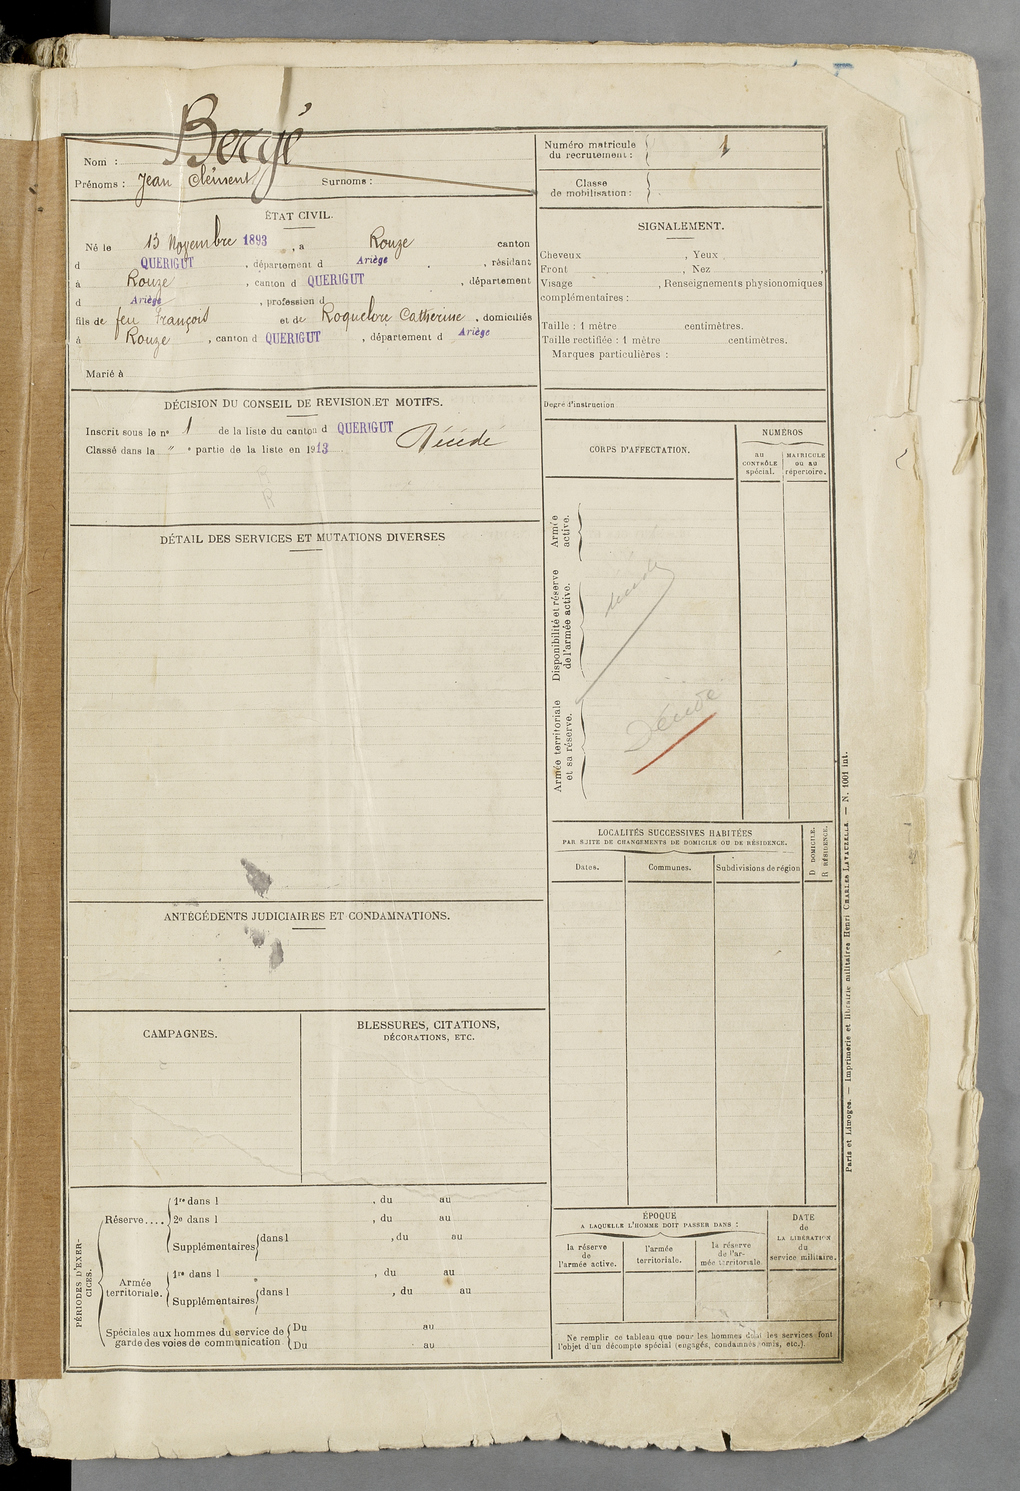 Nom : Bergé
Prénoms : Jean Clément Surnoms :
ÉTAT CIVIL.
Né le 13 Novembre 1893, à Rouze canton
d QUERIGUT, département d Ariège, résidant
à Rouze, canton d QUERIGUT, département
d Ariège, profession d
fils de feu François et de Roquelore Catherine, domiciliés
à Rouze, canton d QUERIGUT, département d Ariège
Marié à
DÉCISION DU CONSEIL DE REVISION ET MOTIFS.
Inscrit sous le n° 1 de la liste du canton d QUERIGUT
Classé dans la " e partie de la liste en 1913 Décédé
DÉTAIL DES SERVICES ET MUTATIONS DIVERSES
ANTÉCÉDENTS JUDICIAIRES ET CONDAMNATIONS.
CAMPAGNES.
BLESSURES, CITATIONS,
DÉCORATIONS, ETC.
PÉRIODES D'EXER-
CICES.
Réserve....
1re dans l , du au
2e dans l , du au
Supplémentaires dans l , du au
Armée
territoriale.
1re dans l , du au
Supplémentaires dans l , du au
Spéciales aux hommes du service de
garde des voies de communication
Du au
Du au
Numéro matricule
du recrutement : 1
Classe
de mobilisation :
SIGNALEMENT.
Cheveux , Yeux
Front , Nez ,
Visage , Renseignements physionomiques
complémentaires :
Taille : 1 mètre centimètres.
Taille rectifiée : 1 mètre centimètres.
Marques particulières :
Degré d'instruction
CORPS D'AFFECTATION.
NUMÉROS
au
CONTRÔLE
spécial.
MATRICULE
ou au
répertoire.
Armée
active.
Disponibilité et réserve
de l'armée active.
décédé
Armée territoriale
et sa réserve.
Décédé
LOCALITÉS SUCCESSIVES HABITÉES
PAR SUITE DE CHANGEMENTS DE DOMICILE OU DE RÉSIDENCE.
Dates.
Communes.
Subdivisions de région
D DOMICILE.
R RÉSIDENCE.
ÉPOQUE
A LAQUELLE L'HOMME DOIT PASSER DANS :
la réserve
de
l'armée active.
l'armée
territoriale.
la réserve
de l'ar-
mée territoriale
DATE
de
LA LIBÉRATION
du
service militaire.
Ne remplir ce tableau que pour les hommes dont les services font
l'objet d'un décompte spécial (engagés, condamnés, omis, etc.).
Paris et Limoges. — Imprimerie et librairie militaires Henri CHARLES-LAVAUZELLE. — N. 1001 int.